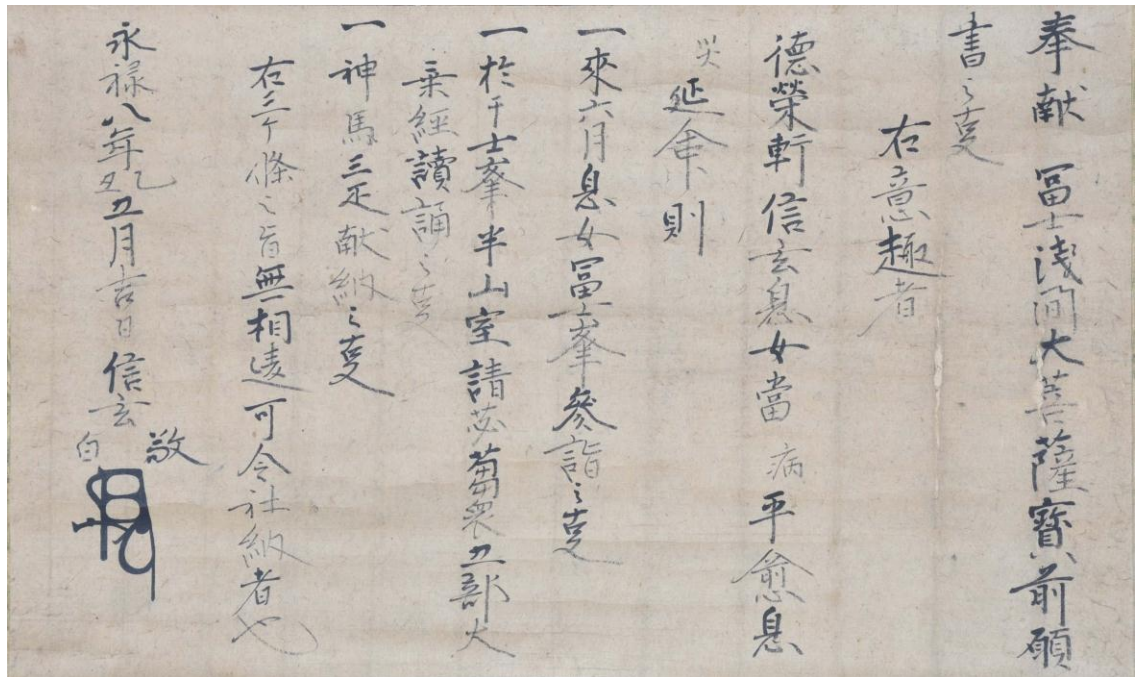 奉献 冨士浅間大菩薩寳前願
書之叓
右意趣者
德榮軒信玄息女當病平愈息
災延命則
一來六月息女冨士峯參詣之叓
一於于士峯半山室請苾蒭衆五部大
乗經讀誦之叓
一神馬三疋献納之叓
右三ケ條之旨無相違可令社納者也
永禄八年乙丑五月吉日信玄 敬白